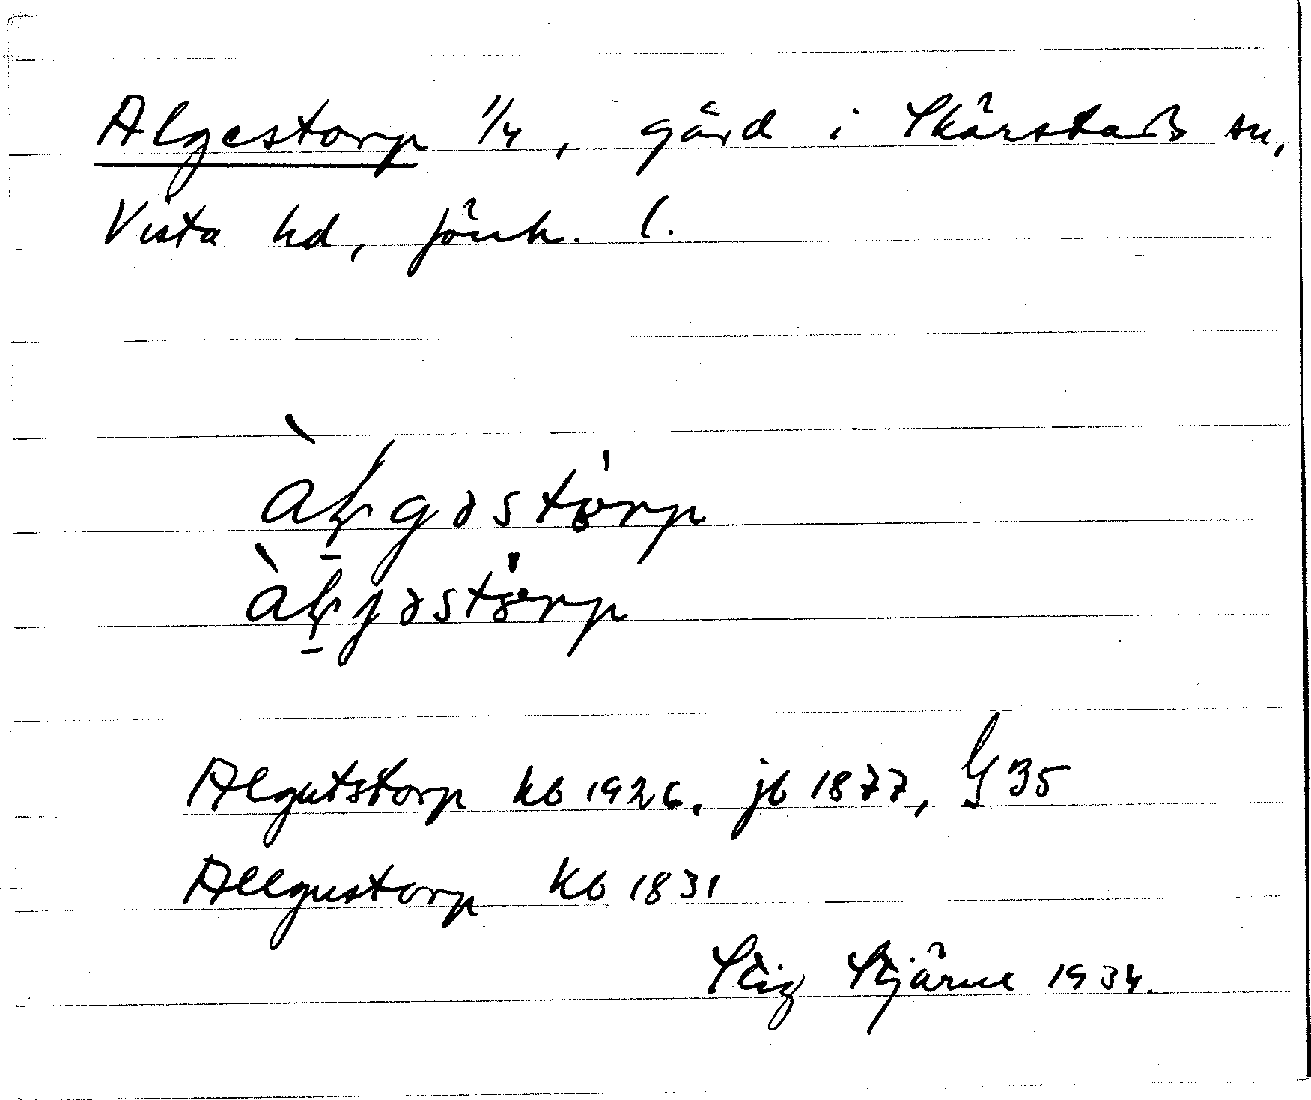 Algestorp 1/4, gård i Skärstads sn,
Vista hd, Jönk. l.
àḷgəstørp
àḷjəstørp
Algutstorp kb 1926, jb 1877, G 35
Allgustorp kb 1831
Stig Stjärne 1934.